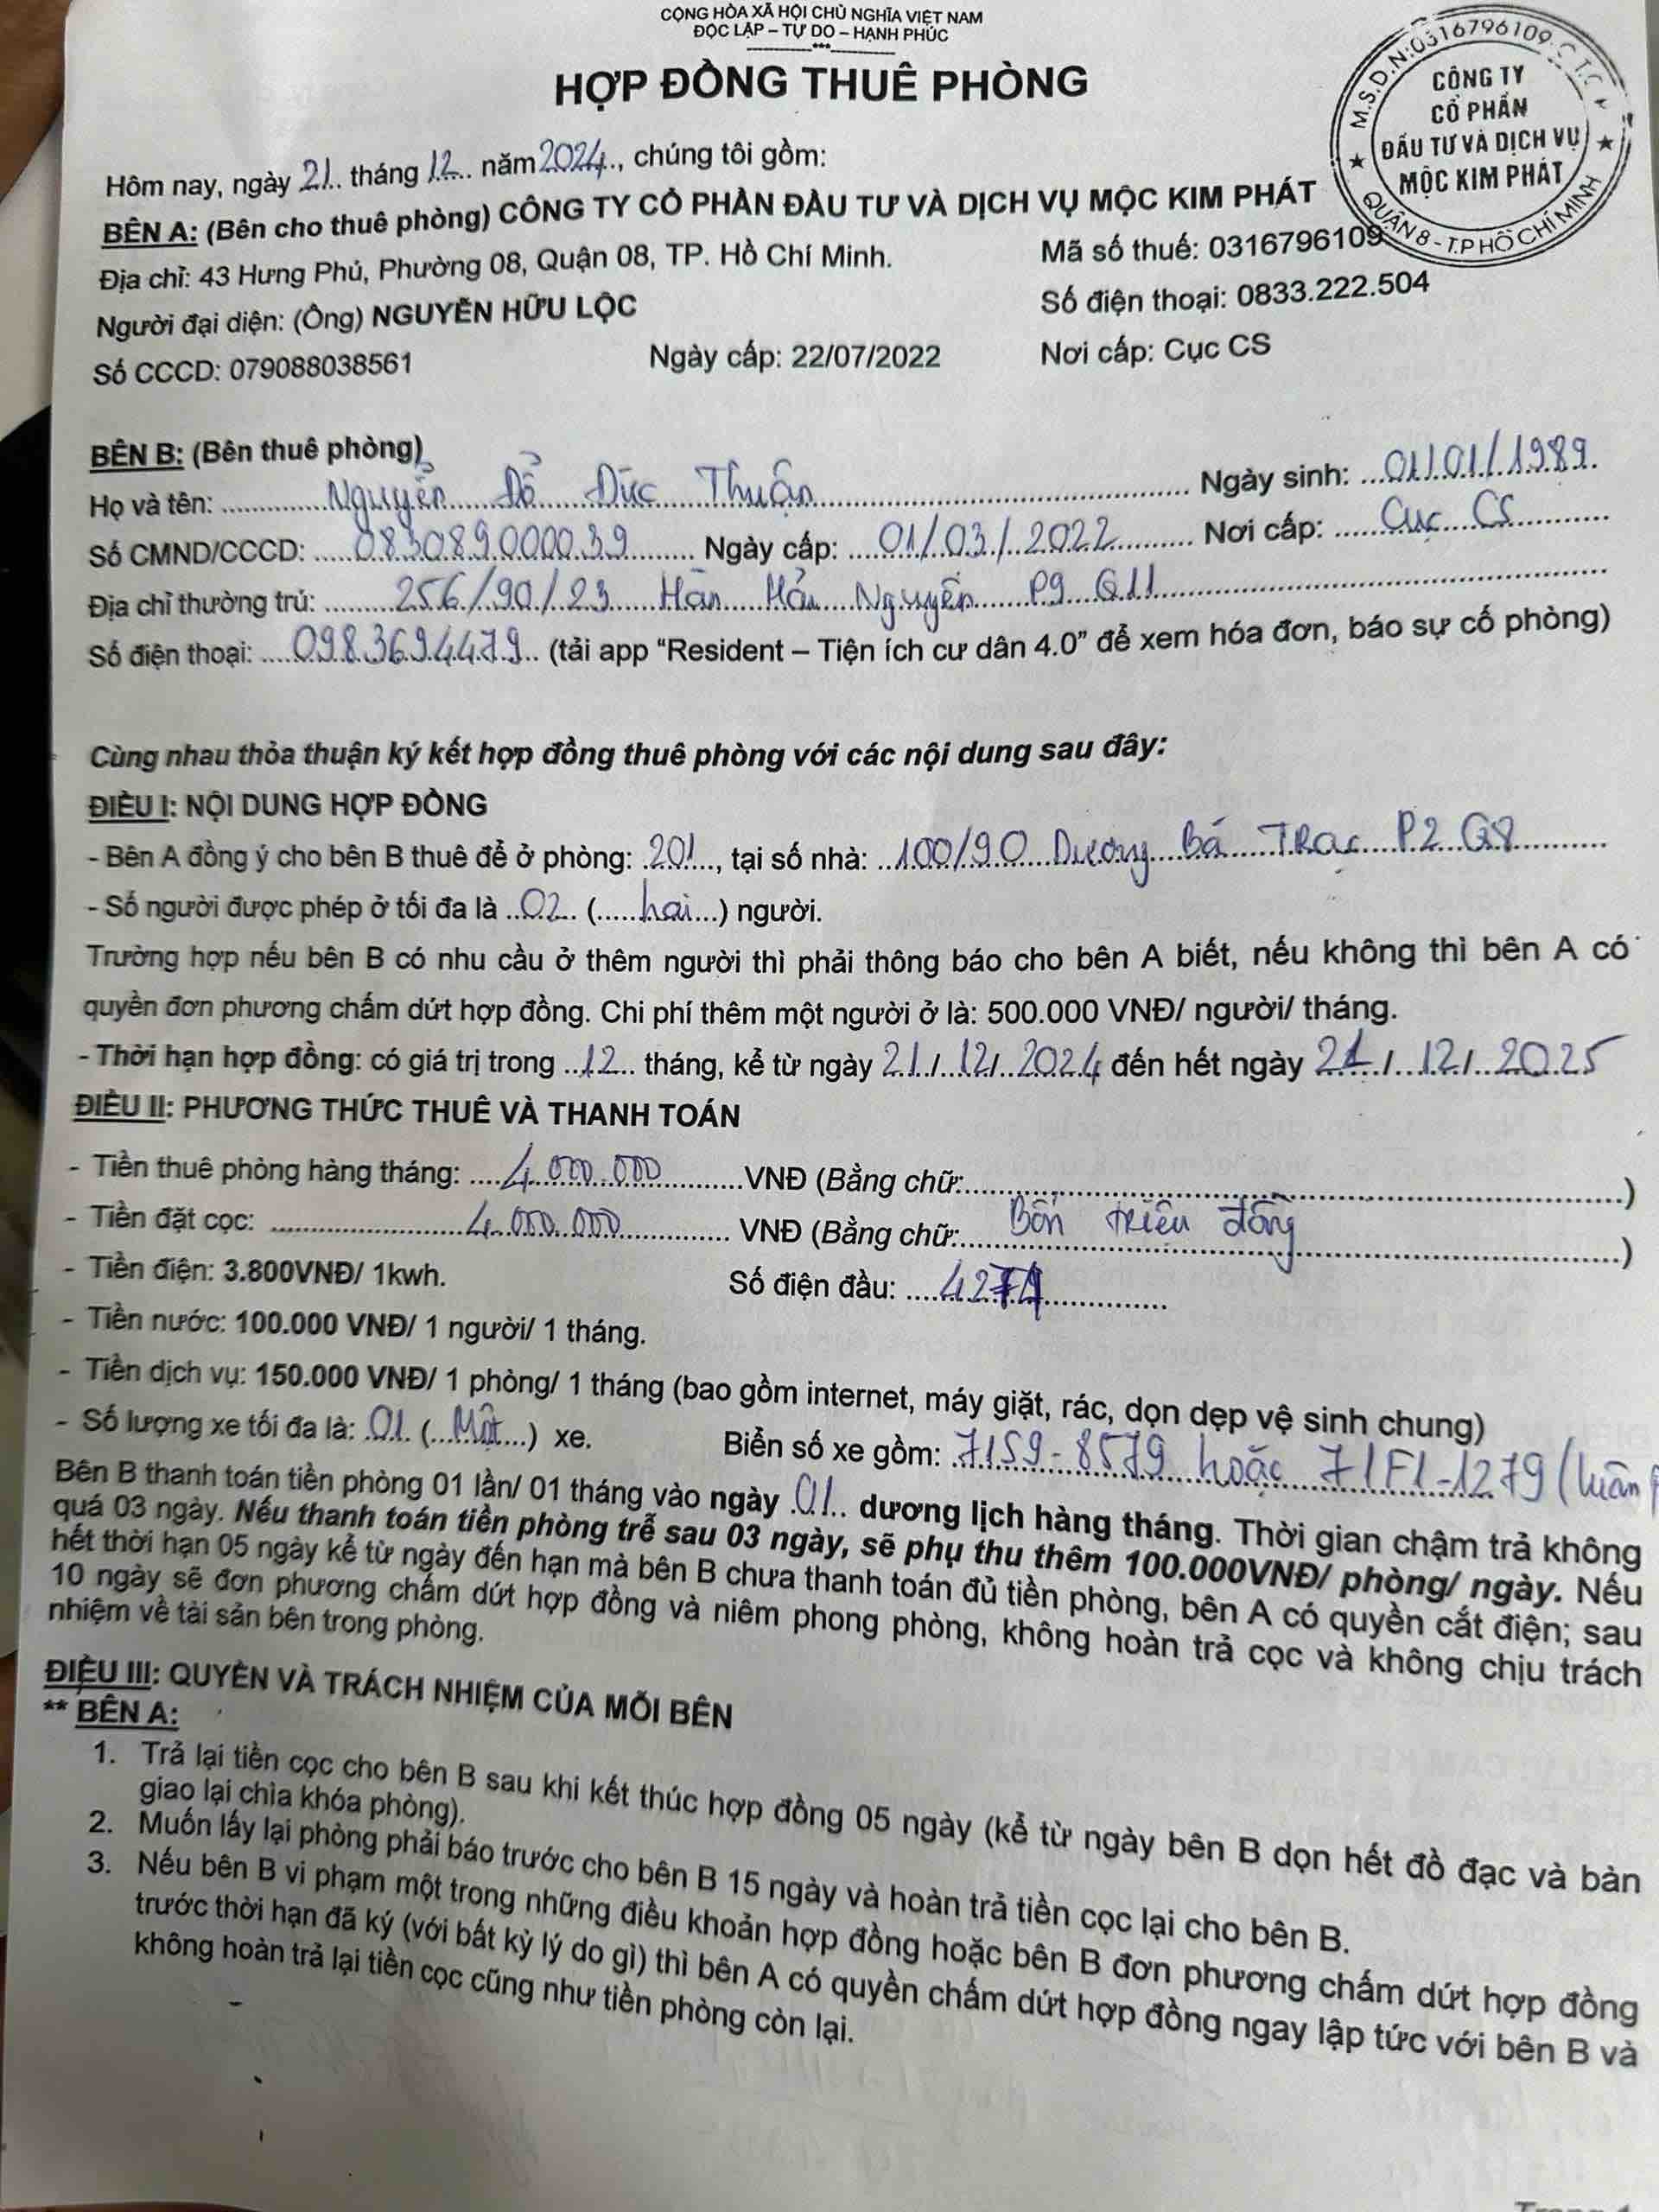 CỘNG HÒA XÃ HỘI CHỦ NGHĨA VIỆT NAM
ĐỘC LẬP – TỰ DO – HẠNH PHÚC
***
HỢP ĐỒNG THUÊ PHÒNG
M.S.D.N:0316796109-C.T.C
CÔNG TY
CỔ PHẦN
ĐẦU TƯ VÀ DỊCH VỤ
MỘC KIM PHÁT
QUẬN 8 - T.P HỒ CHÍ MINH
Hôm nay, ngày 21 tháng 12 năm 2024, chúng tôi gồm:
BÊN A: (Bên cho thuê phòng) CÔNG TY CỔ PHẦN ĐẦU TƯ VÀ DỊCH VỤ MỘC KIM PHÁT
Địa chỉ: 43 Hưng Phú, Phường 08, Quận 08, TP. Hồ Chí Minh. Mã số thuế: 0316796109
Người đại diện: (Ông) NGUYỄN HỮU LỘC Số điện thoại: 0833.222.504
Số CCCD: 079088038561 Ngày cấp: 22/07/2022 Nơi cấp: Cục CS
BÊN B: (Bên thuê phòng)
Họ và tên: Nguyễn Đỗ Đức Thuận Ngày sinh: 01/01/1989
Số CMND/CCCD: 083089000039 Ngày cấp: 01/03/2022 Nơi cấp: Cục CS
Địa chỉ thường trú: 256/90/23 Hàn Hải Nguyên P9 Q11
Số điện thoại: 0983694479 (tải app “Resident – Tiện ích cư dân 4.0” để xem hóa đơn, báo sự cố phòng)
Cùng nhau thỏa thuận ký kết hợp đồng thuê phòng với các nội dung sau đây:
ĐIỀU I: NỘI DUNG HỢP ĐỒNG
- Bên A đồng ý cho bên B thuê để ở phòng: 201, tại số nhà: 100/90 Dương Bá Trạc P2 Q8
- Số người được phép ở tối đa là 02 (hai) người.
Trường hợp nếu bên B có nhu cầu ở thêm người thì phải thông báo cho bên A biết, nếu không thì bên A có
quyền đơn phương chấm dứt hợp đồng. Chi phí thêm một người ở là: 500.000 VNĐ/ người/ tháng.
- Thời hạn hợp đồng: có giá trị trong 12 tháng, kể từ ngày 21/12/2024 đến hết ngày 21/12/2025
ĐIỀU II: PHƯƠNG THỨC THUÊ VÀ THANH TOÁN
- Tiền thuê phòng hàng tháng: 4.000.000 VNĐ (Bằng chữ: )
- Tiền đặt cọc: 4.000.000 VNĐ (Bằng chữ: Bốn triệu đồng )
- Tiền điện: 3.800VNĐ/ 1kwh. Số điện đầu:
- Tiền nước: 100.000 VNĐ/ 1 người/ 1 tháng.
- Tiền dịch vụ: 150.000 VNĐ/ 1 phòng/ 1 tháng (bao gồm internet, máy giặt, rác, dọn dẹp vệ sinh chung)
- Số lượng xe tối đa là: 01 (Một) xe. Biển số xe gồm: 71S9-8579 hoặc 71F1-1279 (luân
Bên B thanh toán tiền phòng 01 lần/ 01 tháng vào ngày 01 dương lịch hàng tháng. Thời gian chậm trả không
quá 03 ngày. Nếu thanh toán tiền phòng trễ sau 03 ngày, sẽ phụ thu thêm 100.000VNĐ/ phòng/ ngày. Nếu
hết thời hạn 05 ngày kể từ ngày đến hạn mà bên B chưa thanh toán đủ tiền phòng, bên A có quyền cắt điện; sau
10 ngày sẽ đơn phương chấm dứt hợp đồng và niêm phong phòng, không hoàn trả cọc và không chịu trách
nhiệm về tài sản bên trong phòng.
ĐIỀU III: QUYỀN VÀ TRÁCH NHIỆM CỦA MỖI BÊN
** BÊN A:
1. Trả lại tiền cọc cho bên B sau khi kết thúc hợp đồng 05 ngày (kể từ ngày bên B dọn hết đồ đạc và bàn
giao lại chìa khóa phòng).
2. Muốn lấy lại phòng phải báo trước cho bên B 15 ngày và hoàn trả tiền cọc lại cho bên B.
3. Nếu bên B vi phạm một trong những điều khoản hợp đồng hoặc bên B đơn phương chấm dứt hợp đồng
trước thời hạn đã ký (với bất kỳ lý do gì) thì bên A có quyền chấm dứt hợp đồng ngay lập tức với bên B và
không hoàn trả lại tiền cọc cũng như tiền phòng còn lại.